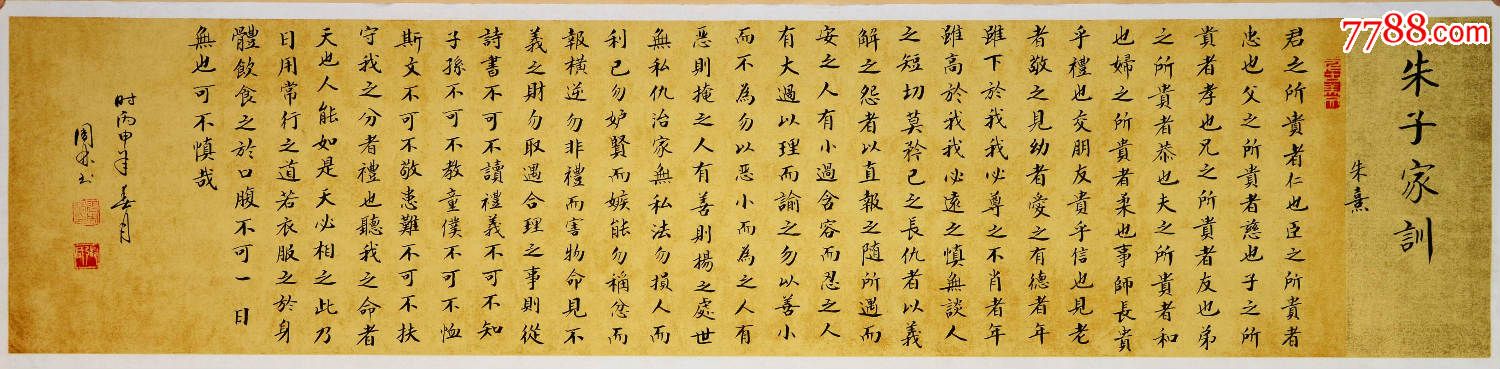 7788.com
朱子家訓
朱熹
君之所貴者仁也臣之所貴者
忠也父之所貴者慈也子之所
貴者孝也兄之所貴者友也弟
之所貴者恭也夫之所貴者和
也婦之所貴者柔也事師長貴
乎禮也交朋友貴乎信也見老
者敬之見幼者愛之有德者年
雖下於我我必尊之不肖者年
雖高於我我必遠之慎無談人
之短切莫矜己之長仇者以義
解之怨者以直報之随所遇而
安之人有小過含容而忍之人
有大過以理而諭之勿以善小
而不為勿以惡小而為之人有
惡則掩之人有善則揚之處世
無私仇治家無私法勿損人而
利己勿妒賢而嫉能勿稱忿而
報橫逆勿非禮而害物命見不
義之財勿取遇合理之事則從
詩書不可不讀禮義不可不知
子孫不可不教童僕不可不恤
斯文不可不敬患難不可不扶
守我之分者禮也聽我之命者
天也人能如是天必相之此乃
日用常行之道若衣服之於身
體飲食之於口腹不可一日
無也可不慎哉
时丙申年春月